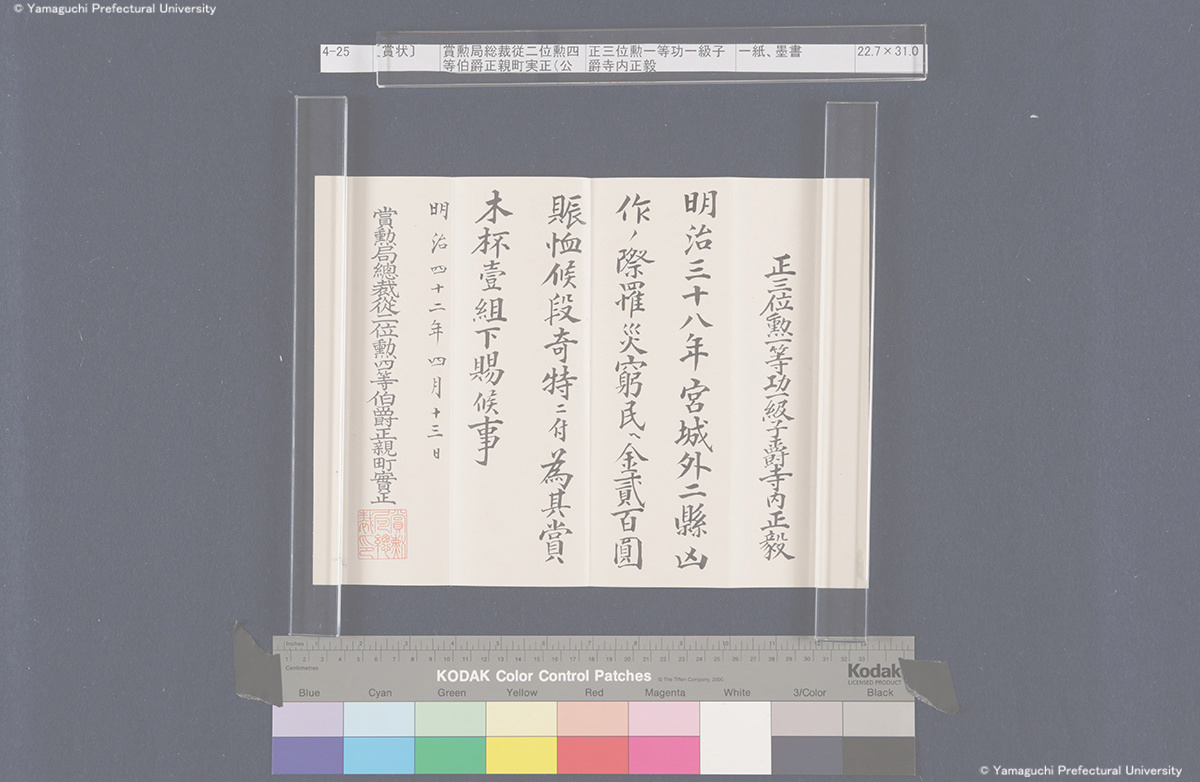 © Yamaguchi Prefectural University
4-25 〔賞状〕 賞勲局総裁従二位勲四等伯爵正親町実正(公 正三位勲一等功一級子爵寺内正毅 一紙、墨書 22.7×31.0
正三位勲一等功一級子爵寺内正毅
明治三十八年宮城外二縣凶
作ノ際罹災窮民ヘ金貳百圓
賑恤候段奇特ニ付為其賞
木杯壹組下賜候事
明治四十二年四月十三日
賞勲局總裁從二位勲四等伯爵正親町實正
Inches 1 2 3 4 5 6 7 8 9 10 11 12 13
1 2 3 4 5 6 7 8 9 10 11 12 13 14 15 16 17 18 19 20 21 22 23 24 25 26 27 28 29 30 31 32 33
Centimetres
KODAK Color Control Patches © The Tiffen Company, 2000 Kodak
LICENSED PRODUCT
Blue Cyan Green Yellow Red Magenta White 3/Color Black
© Yamaguchi Prefectural University